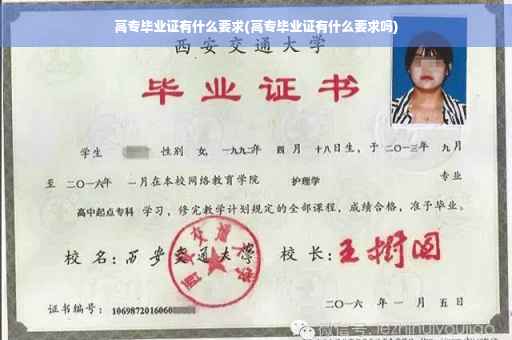 高专毕业证有什么要求(高专毕业证有什么要求吗)
西安交通大学
毕业证书
学生 性别 女, 一九九二年 四 月 十八日生, 于 二〇一三年 九月
至 二〇一六年 一月在本校网络教育学院 护理学 专业
高中起点专科 学习, 修完教学计划规定的全部课程, 成绩合格, 准予毕业。
校 名: 西安交通大学 校 长: 王树国
西安交通大学
证书编号: 1069872016060
二〇一六 年 一 月 五 日
微信号: jiezhinuiyoujiao